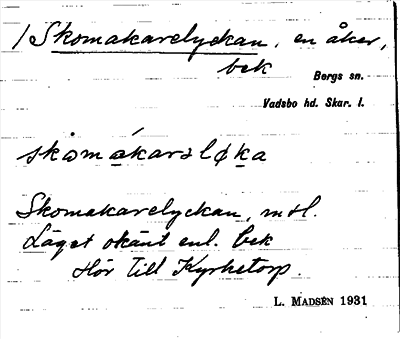 /Skomakarelyckan, en åker,
bek
Bergs sn.
Vadsbo hd. Skar. l.
skomákarəløka
Skomakarelyckan, mtl.
Läget okänt enl. bek
Hör till Kyrketorp.
L. MADSÉN 1931